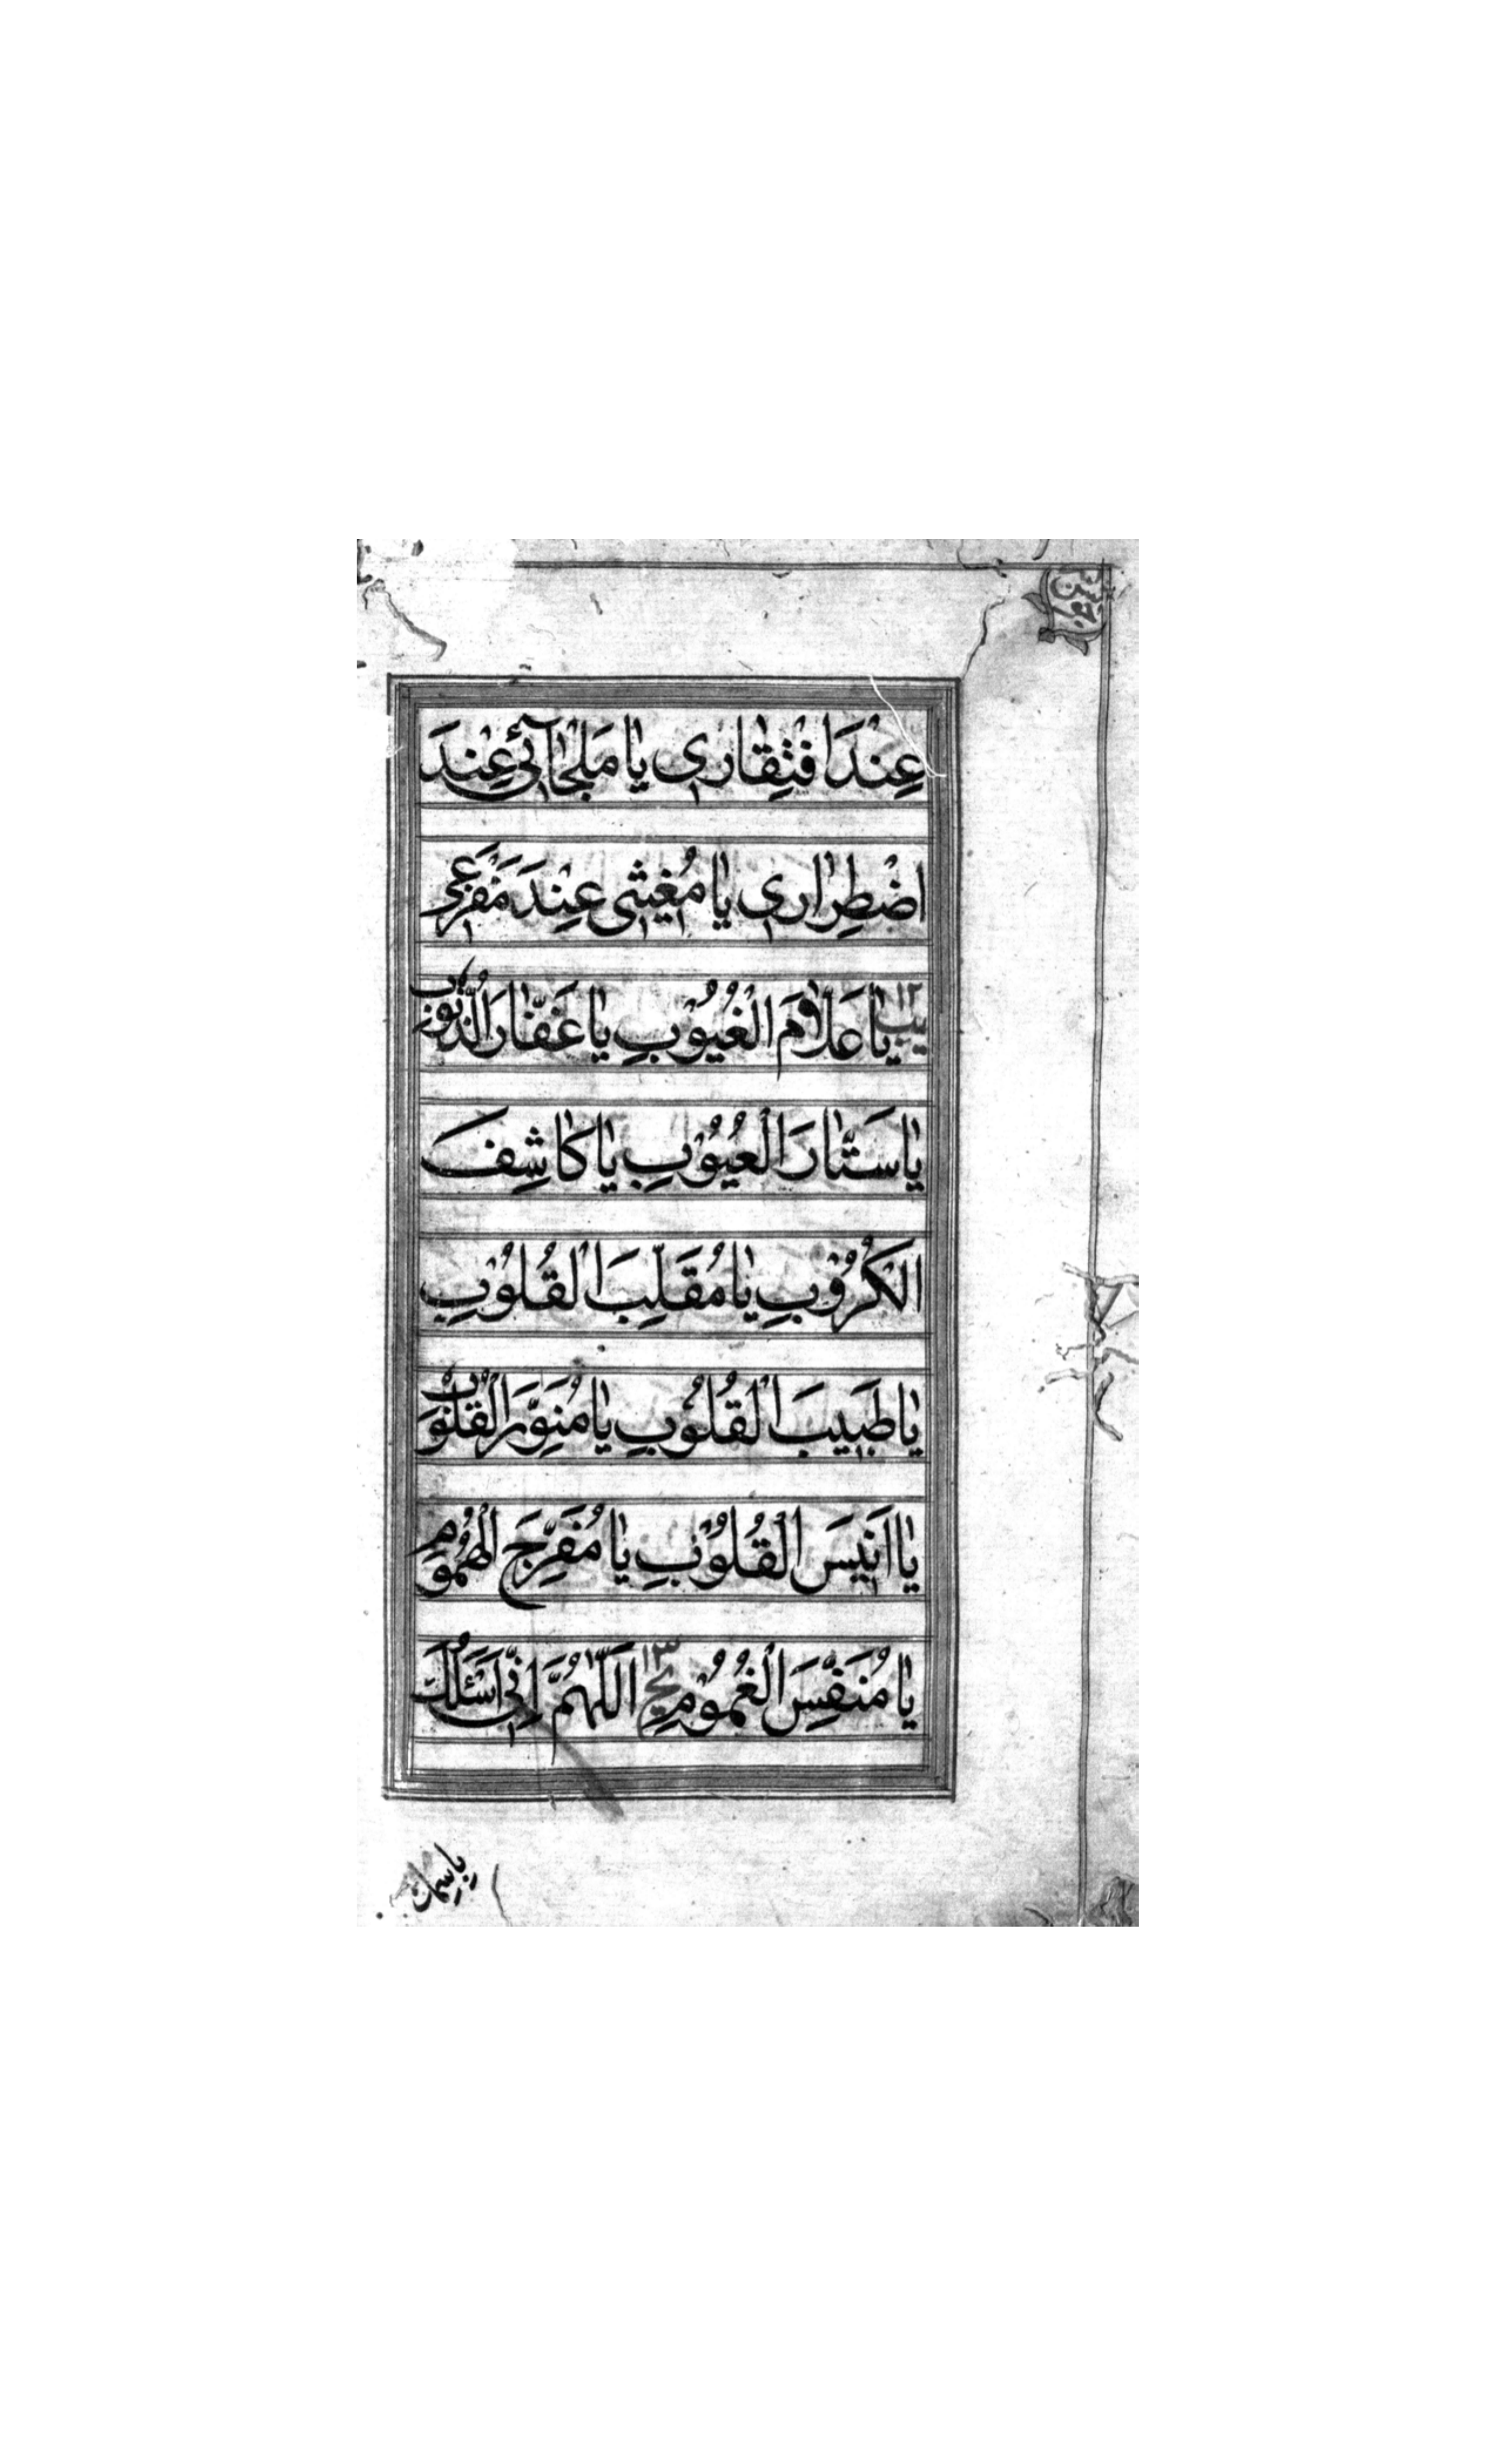 جوشن
عِنْدَ افْتِقٰارِى يٰا مَلْجَاۤئِى عِنْدَ
اضْطِرٰارِى يٰا مُغِيثِى عِنْدَ مَفْزَعِى
١٢ يب يٰا عَلّٰامَ الْغُيُوْبِ يٰا غَفّٰارَ الذُّنُوْبِ
يٰا سَتّٰارَ الْعُيُوْبِ يٰا كٰاشِفَ
الْكُرُوْبِ يٰا مُقَلِّبَ الْقُلُوْبِ
يٰا طَبِيبَ الْقُلُوْبِ يٰا مُنَوِّرَ الْقُلُوْبِ
يٰا اَنِيسَ الْقُلُوْبِ يٰا مُفَرِّجَ الْهُمُوْمِ
يٰا مُنَفِّسَ الْغُمُوْمِ ١٣ يج اَللّٰهُمَّ اِنِّى اَسْئَلُكَ
بِاسْمِكَ